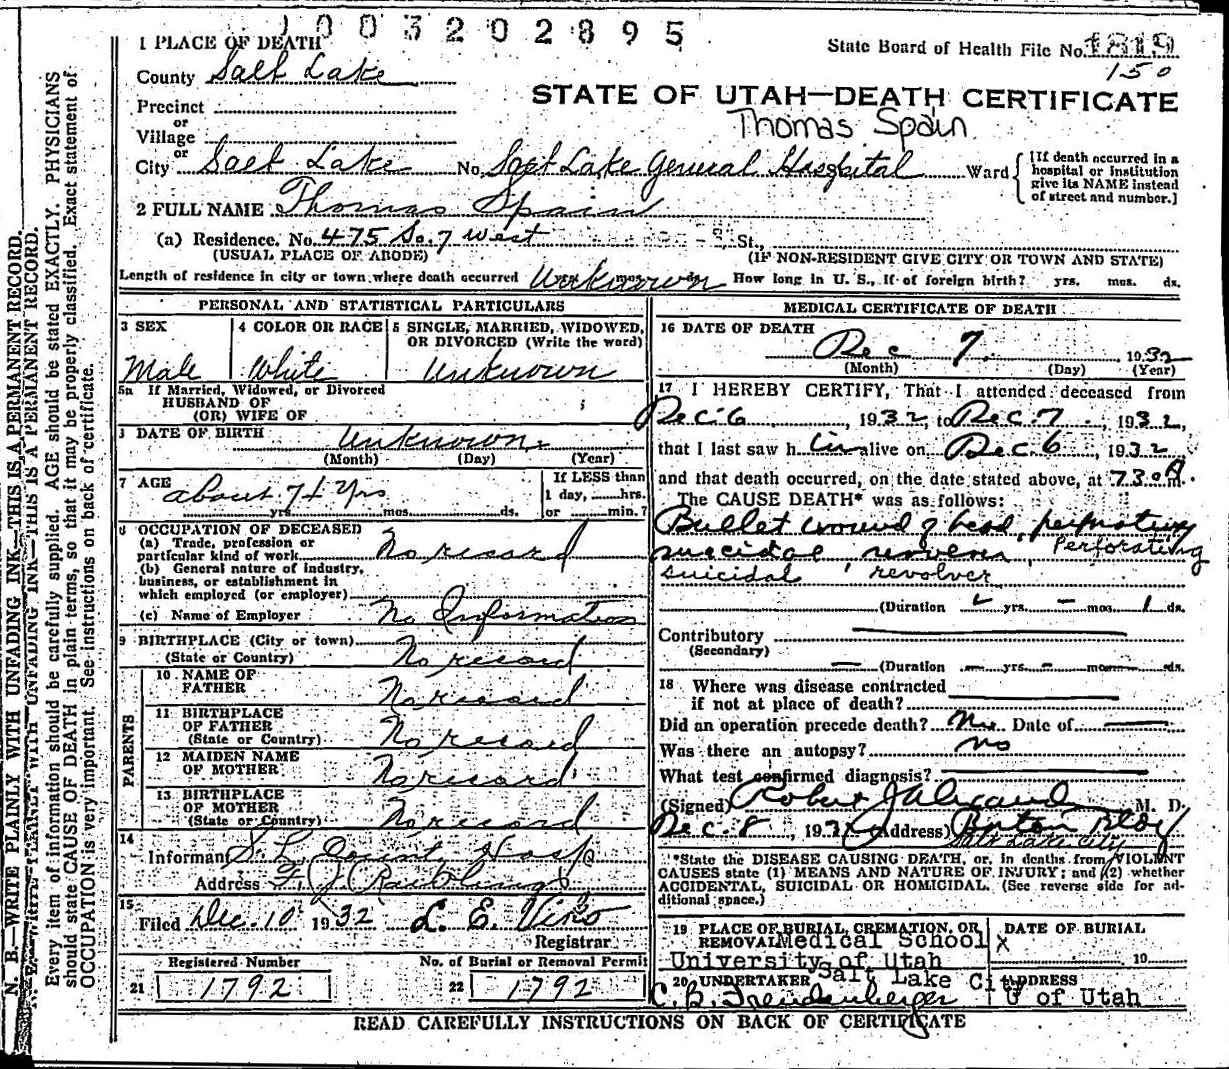 1003202895
State Board of Health File No. 1819
150
STATE OF UTAH—DEATH CERTIFICATE
Thomas Spain
1 PLACE OF DEATH
County Salt Lake
Precinct
or
Village
or
City Salt Lake No. Salt Lake General Hospital Ward
[If death occurred in a hospital or institution give its NAME instead of street and number.]
2 FULL NAME Thomas Spain
(a) Residence. No. 475 So. 7 West St.,
(USUAL PLACE OF ABODE) (IF NON-RESIDENT GIVE CITY OR TOWN AND STATE)
Length of residence in city or town where death occurred Unknown How long in U. S., if of foreign birth? yrs. mos. ds.
PERSONAL AND STATISTICAL PARTICULARS
3 SEX
Male
4 COLOR OR RACE
White
5 SINGLE, MARRIED, WIDOWED, OR DIVORCED (Write the word)
Unknown
5a If Married, Widowed, or Divorced
HUSBAND OF
(OR) WIFE OF
DATE OF BIRTH Unknown
(Month) (Day) (Year)
7 AGE about 74 yrs
yrs. mos. ds.
If LESS than
1 day, hrs.
or min.?
8 OCCUPATION OF DECEASED
(a) Trade, profession or
particular kind of work No record
(b) General nature of industry,
business, or establishment in
which employed (or employer)
(c) Name of Employer No Information
9 BIRTHPLACE (City or town)
(State or Country) No record
PARENTS
10 NAME OF
FATHER No record
11 BIRTHPLACE
OF FATHER
(State or Country) No record
12 MAIDEN NAME
OF MOTHER No record
13 BIRTHPLACE
OF MOTHER
(State or Country) No record
14
Informant S. L. County Hosp
Address
15
Filed Dec. 10 1932 L. E. Viko
Registrar
Registered Number No. of Burial or Removal Permit
21 1792 22 1792
MEDICAL CERTIFICATE OF DEATH
16 DATE OF DEATH
Dec 7. 1932
(Month) (Day) (Year)
17 I HEREBY CERTIFY, That I attended deceased from
Dec. 6, 1932, to Dec. 7, 1932,
that I last saw h im alive on Dec. 6, 1932
and that death occurred, on the date stated above, at 730 A m.
The CAUSE DEATH* was as follows:
Bullet wound of head, perforating
suicidal, revolver, Perforating
suicidal, revolver
(Duration yrs. – mos. 1 ds.
Contributory
(Secondary)
(Duration yrs. mos. ds.
18 Where was disease contracted
if not at place of death?
Did an operation precede death? No. Date of
Was there an autopsy? no
What test confirmed diagnosis?
(Signed) Robert J Alexander M. D.
Dec. 8, 1932 (Address) Boston Bldg
Salt Lake City
*State the DISEASE CAUSING DEATH, or, in deaths from VIOLENT
CAUSES state (1) MEANS AND NATURE OF INJURY; and (2) whether
ACCIDENTAL, SUICIDAL OR HOMICIDAL. (See reverse side for ad-
ditional space.)
19 PLACE OF BURIAL, CREMATION, OR
REMOVAL Medical School X
University of Utah
Salt Lake City
DATE OF BURIAL
19
20 UNDERTAKER
ADDRESS
U of Utah
READ CAREFULLY INSTRUCTIONS ON BACK OF CERTIFICATE
N. B.—WRITE PLAINLY WITH UNFADING INK—THIS IS A PERMANENT RECORD.
Every item of information should be carefully supplied. AGE should be stated EXACTLY. PHYSICIANS
should state CAUSE OF DEATH in plain terms, so that it may be properly classified. Exact statement of
OCCUPATION is very important. See instructions on back of certificate.